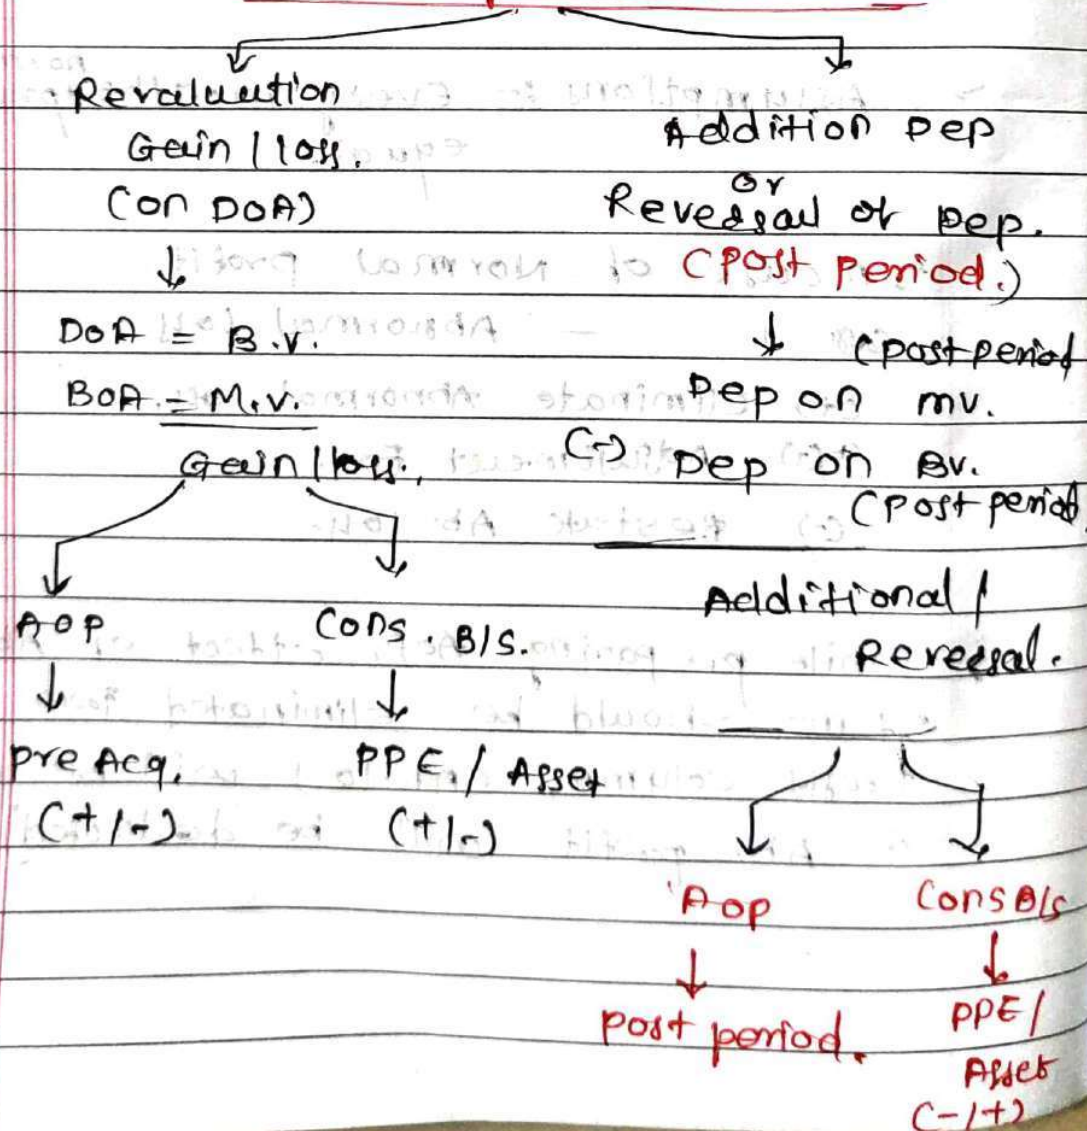 Revaluution
Gain / loss.
(on DOA)
↓
DOA = B.V.
BOA = M.V.
Gain / loss.
AOP
↓
Pre Acq.
(+/-)
Cons. B/S.
↓
PPE / Asset
(+/-)
Addition Dep
or
Revesal of Dep.
(Post Period.)
↓ (post period
Dep on mv.
(-) Dep on BV.
(Post period
Additional /
Reversal.
AOP
↓
post period.
Cons B/S
↓
PPE /
Asset
(-/+)